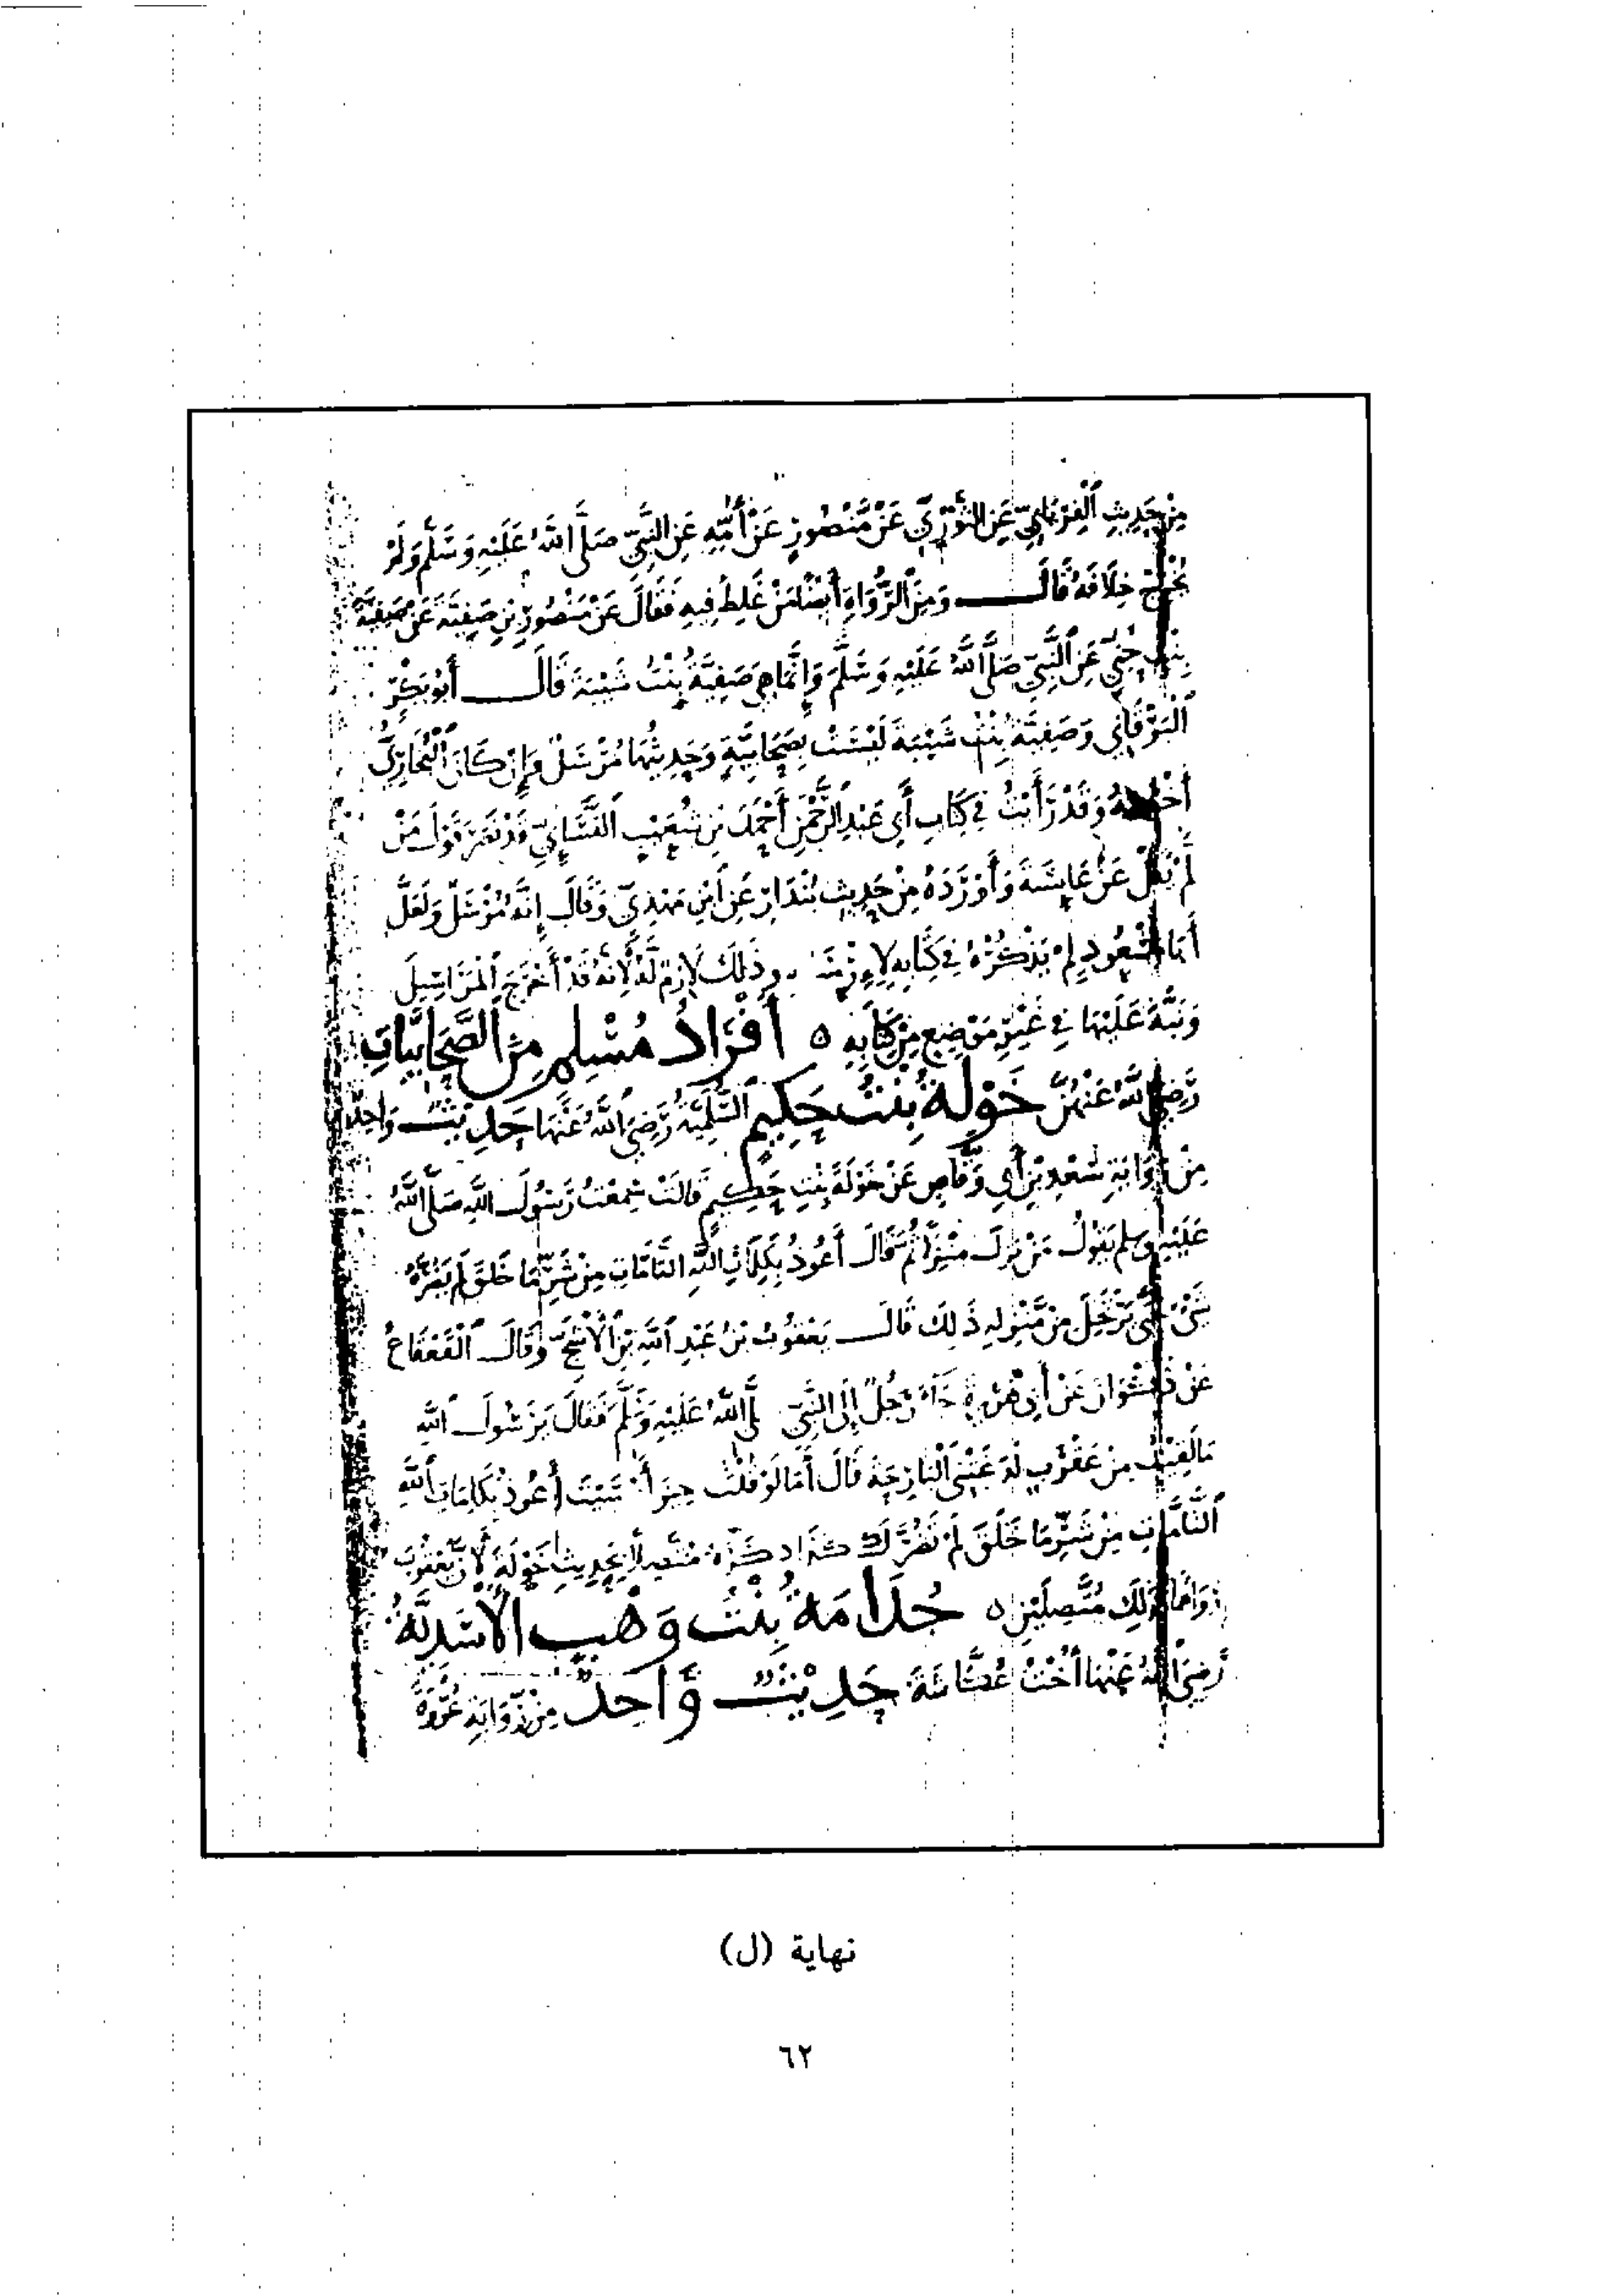 مِنْ حَدِيثِ الْفِرْيَابِيِّ عَنِ الثَّوْرِيِّ عَنْ مَنْصُورٍ عَنْ أُمِّهِ عَنِ النَّبِيِّ صَلَّى اللَّهُ عَلَيْهِ وَسَلَّمَ وَلَمْ
يُخْرِجْ خِلَافَهُ قَالَ وَمِنَ الرُّوَاةِ أَيْضًا مَنْ غَلِطَ فِيهِ فَقَالَ عَنْ مَنْصُورِ بْنِ صَفِيَّةَ عَنْ صَفِيَّةَ
بِنْتِ حُيَيٍّ عَنِ النَّبِيِّ صَلَّى اللَّهُ عَلَيْهِ وَسَلَّمَ وَإِنَّمَا هِيَ صَفِيَّةُ بِنْتُ شَيْبَةَ قَالَ أَبُو بَكْرٍ
الْبَرْقَانِي وَصَفِيَّةُ بِنْتُ شَيْبَةَ لَيْسَتْ بِصَحَابِيَّةٍ وَحَدِيثُهَا مُرْسَلٌ وَإِنْ كَانَ الْبُخَارِيُّ
أَخْرَجَهُ وَقَدْ رَأَيْتُ فِي كِتَابِ أَبِي عَبْدِ الرَّحْمَنِ أَحْمَدَ بْنِ شُعَيْبٍ النَّسَائِيِّ قَدْ نَصَرَ قَوْلَ مَنْ
لَمْ يَقُلْ عَنْ عَائِشَةَ وَأَوْرَدَهُ مِنْ حَدِيثِ بُنْدَارٍ عَنِ ابْنِ مَهْدِيٍّ وَقَالَ إِنَّهُ مُرْسَلٌ وَلَعَلَّ
أَبَا مَسْعُودٍ لَمْ يَذْكُرْهُ فِي كِتَابِهِ وَذَلِكَ لَازِمٌ لَهُ لِأَنَّهُ قَدْ أَخْرَجَ الْمَرَاسِيلَ
وَنَبَّهَ عَلَيْهَا فِي غَيْرِ مَوْضِعٍ مِنْ كِتَابِهِ ٥ أَفْرَادُ مُسْلِمٍ مِنَ الصَّحَابِيَّاتِ
رَضِيَ اللَّهُ عَنْهُنَّ خَوْلَةُ بِنْتُ حَكِيمٍ السُّلَمِيَّةُ رَضِيَ اللَّهُ عَنْهَا حَدِيثٌ وَاحِدٌ
مِنْ رِوَايَةِ سَعْدِ بْنِ أَبِي وَقَّاصٍ عَنْ خَوْلَةَ بِنْتِ حَكِيمٍ قَالَتْ سَمِعْتُ رَسُولَ اللَّهِ صَلَّى اللَّهُ
عَلَيْهِ وسلم يَقُولُ مَنْ نَزَلَ مَنْزِلًا ثُمَّ قَالَ أَعُوذُ بِكَلِمَاتِ اللَّهِ التَّامَّاتِ مِنْ شَرِّ مَا خَلَقَ لَمْ يَضُرَّهُ
شَيْءٌ حَتَّى يَرْتَحِلَ مِنْ مَنْزِلِهِ ذَلِكَ قَالَ يَعْقُوبُ بْنُ عَبْدِ اللَّهِ بْنِ الْأَشَجِّ وَقَالَ الْقَعْقَاعُ
عَنْ ذَكْوَانَ عَنْ أَبِي هُرَيْرَةَ جَاءَ رَجُلٌ إِلَى النَّبِيِّ صَلَّى اللَّهُ عَلَيْهِ وَسَلَّمَ فَقَالَ يَرَسُولَ اللَّهِ
مَا لَقِيتُ مِنْ عَقْرَبٍ لَدَغَتْنِي الْبَارِحَةَ قَالَ أَمَا لَوْ قُلْتَ حِينَ أَمْسَيْتَ أَعُوذُ بِكَلِمَاتِ اللَّهِ
التَّامَّاتِ مِنْ شَرِّ مَا خَلَقَ لَمْ تَضُرَّكَ كَذَا ذَكَرَهُ مُتَّصِلًا بِحَدِيثِ خَوْلَةَ لِأَنَّ يَعْقُوبَ
رَوَاهُمَا كَذَلِكَ مُتَّصِلَيْنِ ٥ جُدَامَةُ بِنْتُ وَهْبٍ الْأَسَدِيَّةُ
رَضِيَ اللَّهُ عَنْهَا أُخْتُ عُكَّاشَةَ حَدِيثٌ وَاحِدٌ مِنْ رِوَايَةِ عُرْوَةَ
نهاية (ل)
٦٢